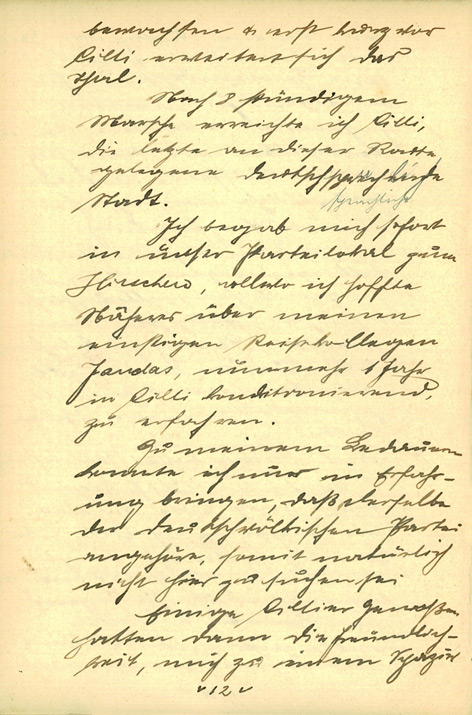 bewachsen & erst kurz vor
Cilli erweitert sich das
Thal.
Nach 8 stündigem
Marsche erreichte ich Cilli,
die letzte an dieser Route
gelegene deutschsprachliche
sprachliche
Stadt.
Ich begab mich sofort
in unser Parteilokal zum
Hirschen, allwo ich hoffte
Näheres über meinen
einstigen Reisekollegen
Jandas, nunmehr 1 Jahr
in Cilli konditionierend,
zu erfahren.
Zu meinem Bedauern
konnte ich nur in Erfahr-
ung bringen, daß derselbe
der deutschvölkischen Partei
angehöre, somit natürlich
nicht hier zu suchen sei
Einige Cillier Genossen
hatten dann die Freundlich-
keit, mich zu einem Spazier
12